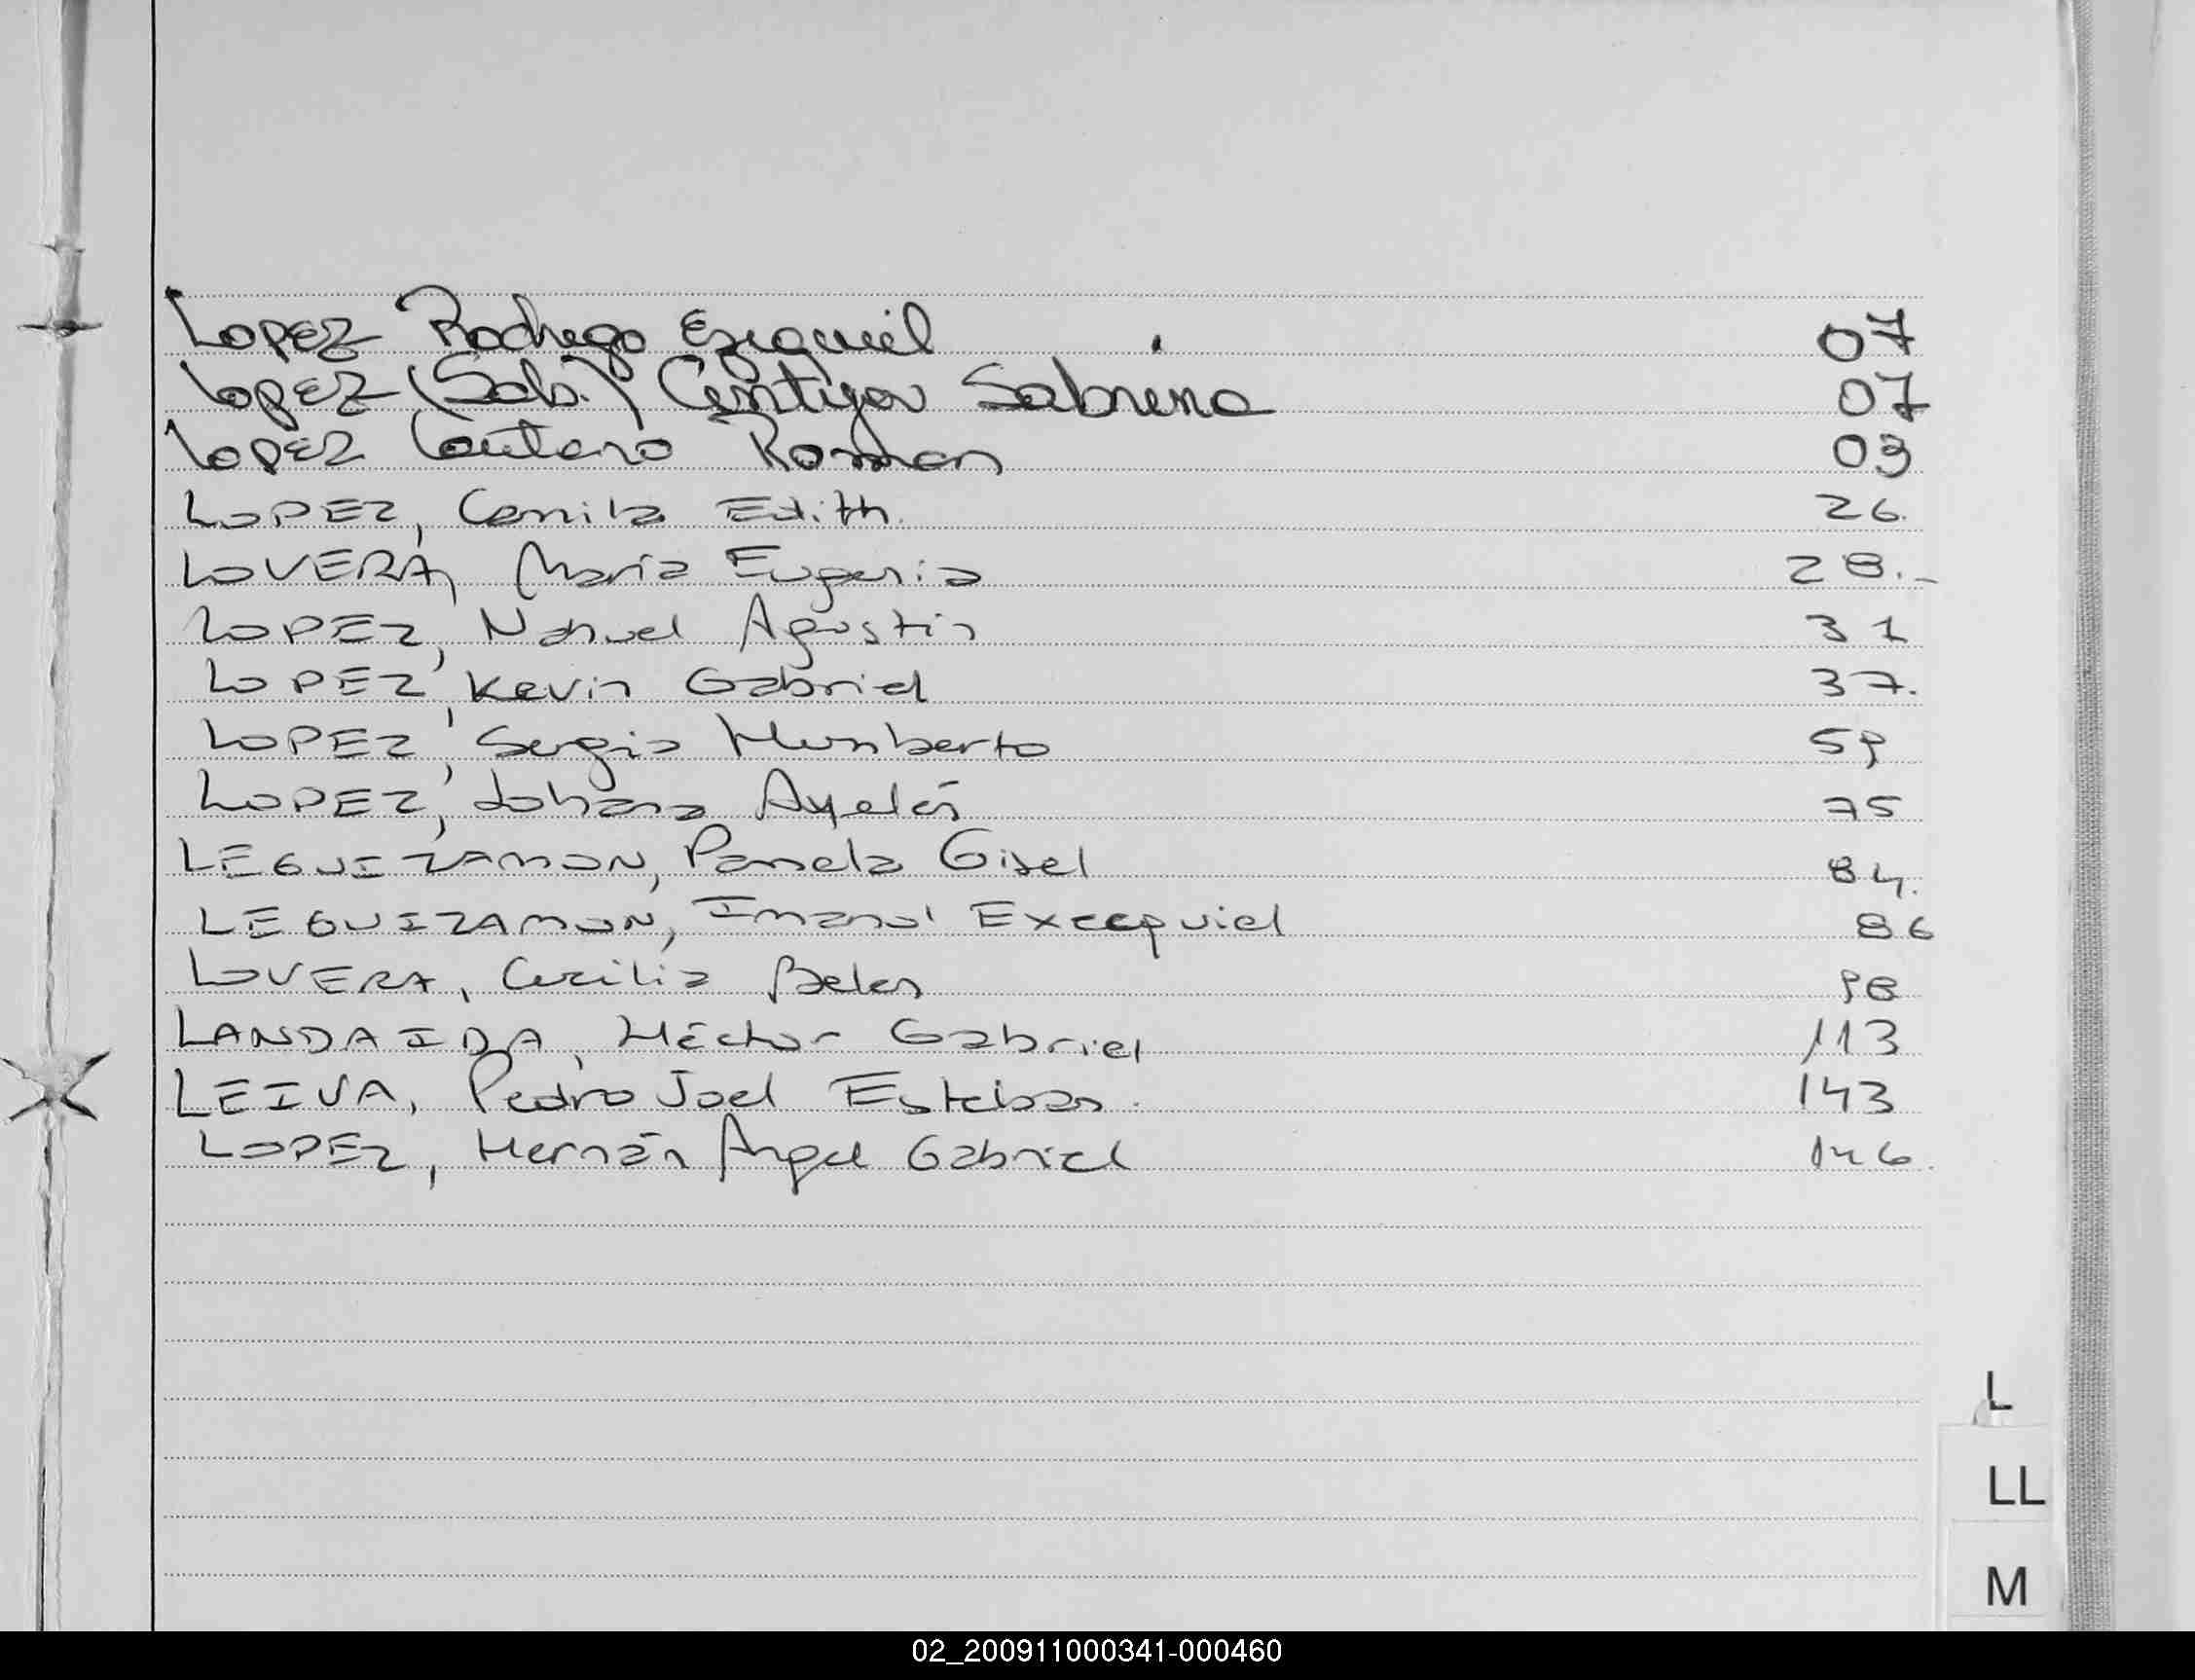 Lopez Rodrigo Ezequiel 07
Lopez (Sab.) Sabrina 07
Lopez Lautaro Roman 03
LOPEZ, Camila Edith. 26.
LOVERA, María Eugenia 28.-
LOPEZ, Nahuel Agustín 31
LOPEZ, Kevin Gabriel 37.
LOPEZ, Sergio Humberto 59
LOPEZ, Johana Ayelén 75
LEGUIZAMON, Pamela Gisel 84.
LEGUIZAMON, Imanol Execquiel 86
LOVERA, Cecilia Belen 98
LANDAIDA, Héctor Gabriel 113
LEIVA, Pedro Joel Esteban. 143
LOPEZ, Hernán Angel Gabriel 146.
L
LL
M
02_200911000341-000460